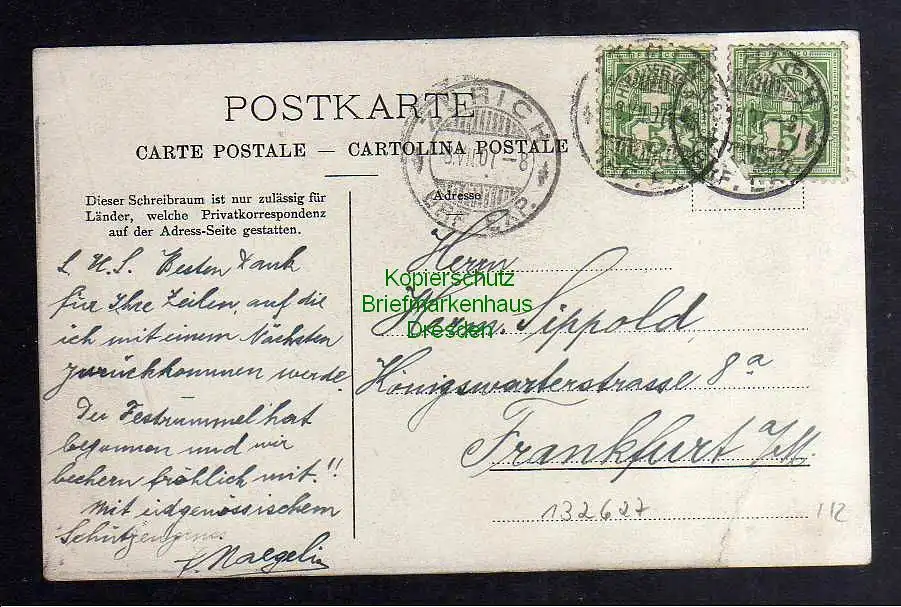 POSTKARTE
CARTE POSTALE — CARTOLINA POSTALE
Dieser Schreibraum ist nur zulässig für
Länder, welche Privatkorrespondenz
auf der Adress-Seite gestatten.
Adresse
ZÜRICH
L. H. S. Besten Dank
für Ihre Zeilen, auf die
ich mit einem Nächsten
zurückkommen werde.
Der Festrummel hat
begonnen und wir
bechern fröhlich mit!!
Mit eidgenössischem
Naegelin
Herrn
Herm. Sippold,
Königswarterstrasse 8a
Frankfurt a/M.
132627
112
Kopierschutz
Briefmarkenhaus
Dresden